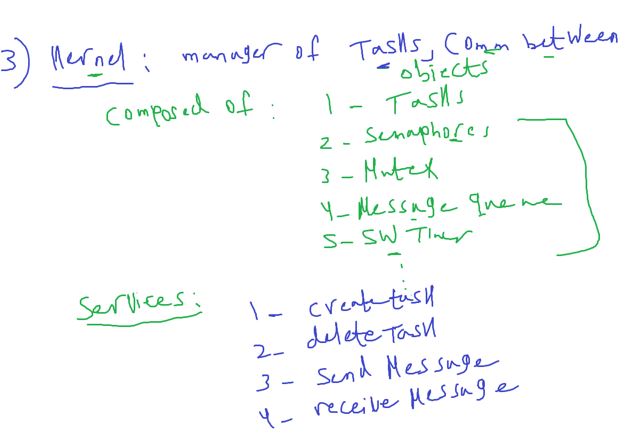 3) Kernel: manager of Tasks, Comm between
objects
Composed of: 1 - Tasks
2 - Semaphores
3 - Mutex
4 - Message queue
5 - SW Timer
Services: 1 - create task
2 - delete Task
3 - Send Message
4 - receive Message